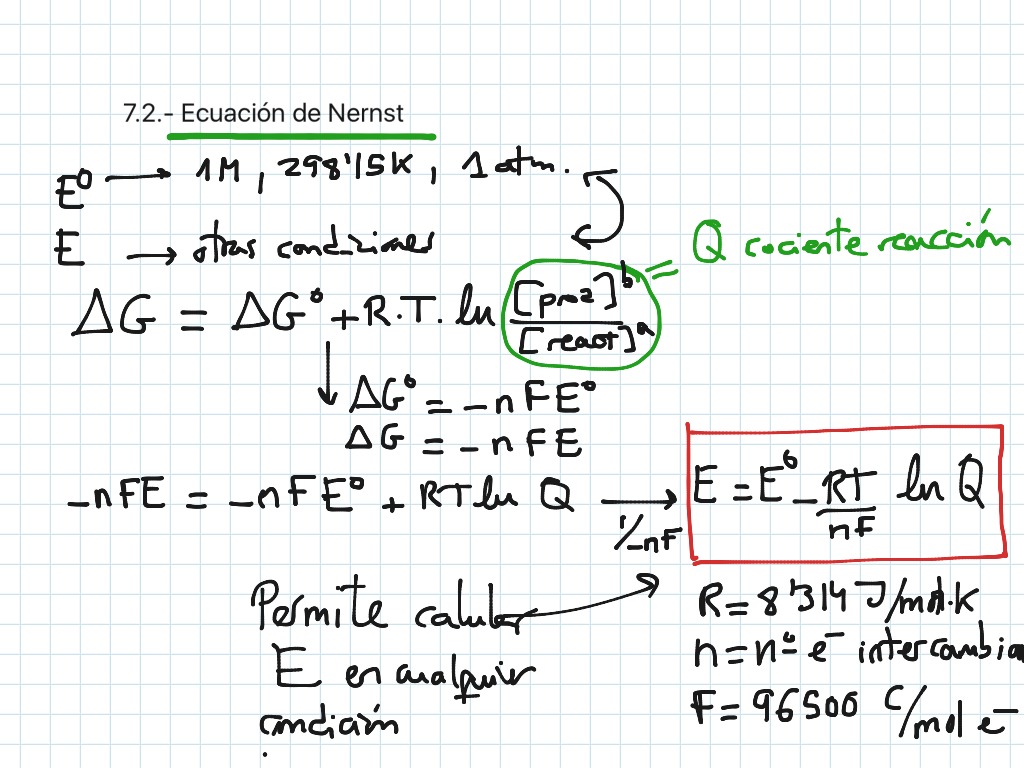 7.2.- Ecuación de Nernst
E⁰ → 1M, 298'15K, 1 atm.
E → otras condiciones
Q cociente reacción
ΔG = ΔG⁰ + R.T. ln [pro2]ᵇ / [react]ᵃ =
ΔG⁰ = -nFE⁰
ΔG = -nFE
-nFE = -nFE⁰ + RT ln Q → 1/-nF
E = E⁰ - RT/nF ln Q
Permite calcular
E en cualquier
condición
R = 8'314 J/mol.K
n = nº e⁻ intercambia
F = 96500 C/mol e⁻